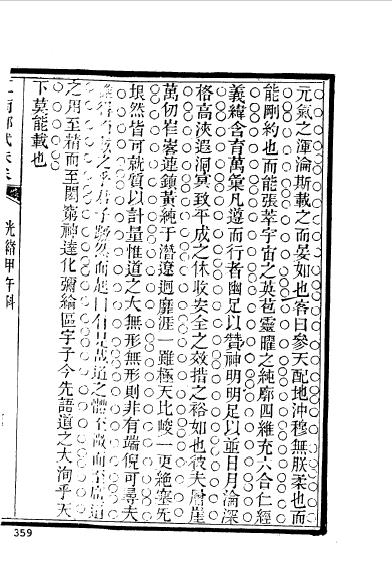 元氣之渾淪斯載之而晏如也客曰參天配地沖穆無朕柔也而
能剛約也而能張萃宇宙之英苞靈曜之純廓四維充六合仁經
義緯含育萬彙凡遵而行者幽足以贊神明明足以並日月淪深
格高浹遐洞冥致平成之休收安全之效措之裕如也彼夫層崖
萬仞崔巍連鎮黃純于潛遼迥靡涯一雖極天比峻一更絶塞死
垠然皆可就質以計量惟道之大無形無形則非有端倪可尋夫
之乎君子然而起曰 道之體至微而至廣道
之用至精而至閎窮神達化彌綸區宇子今先語道之大洵乎天
下莫能載也
光緒甲午科
359